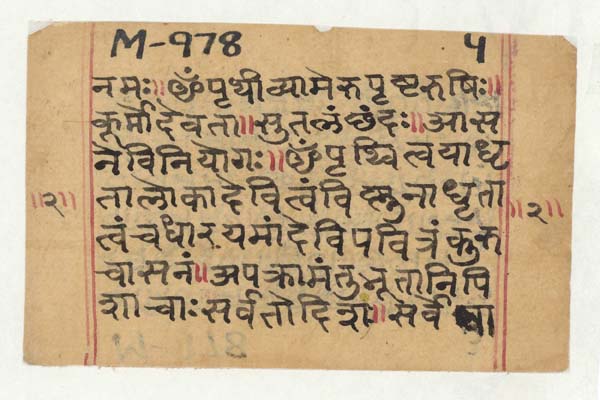 M-१78 ५
नमः॥ॐपृथीव्यामेरुपृष्टरुषिः॥
कूर्मोदेवता॥सुतलंछंदः॥आस
नेविनियोगः॥ॐपृथ्वित्वयाधृ
॥२॥ तालोकादेवित्वंविष्णुनाधृता ॥२॥
त्वंचधारयमांदेविपवित्रंकुरु
चासनं॥अपक्रामंतुभूतानिपि
शाचाःसर्वतोदिशं॥सर्वेषा